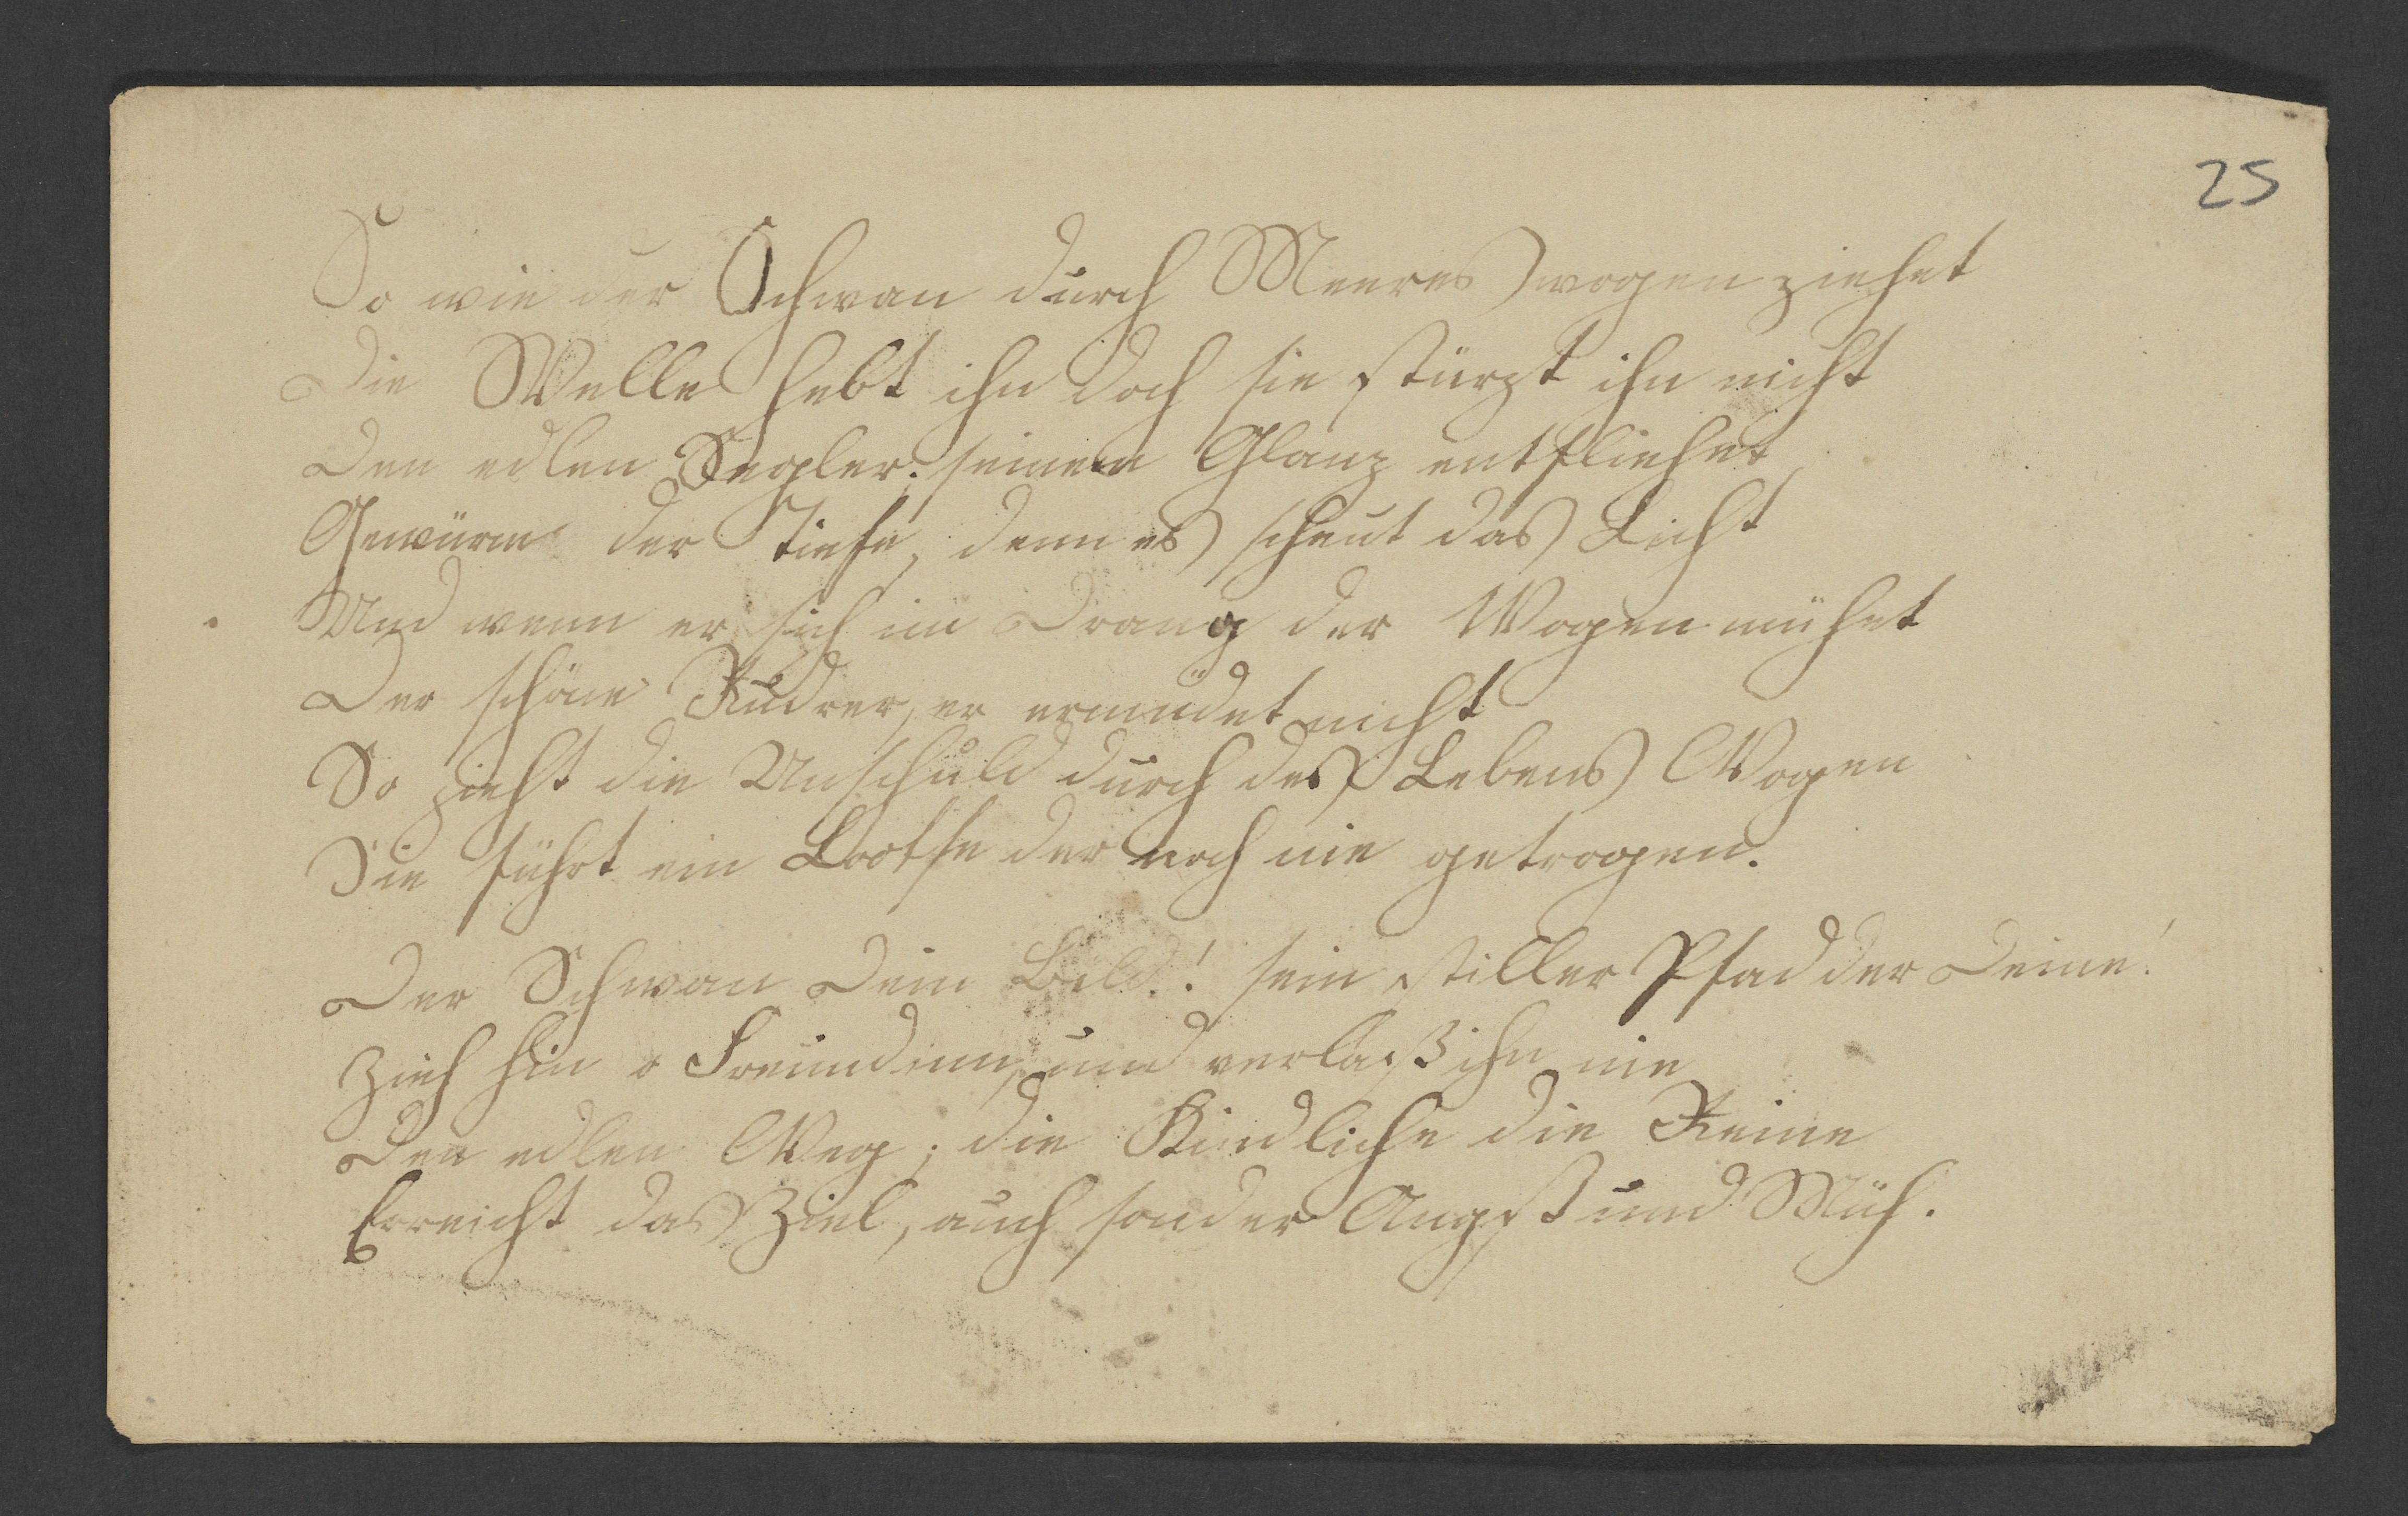 25
So wie der Schwan durch Meeres wogen ziehet
Die Welle hebt ihn doch sie stürzt ihn nicht
Den edlen Segler: seinem Glanz entfliehet
Gewürm der Tiefe, denn es scheut das Licht
Und wenn er sich im Drang der Wogen mühet
Der schöne Rudrer, er ermüdet nicht
So zieht die Unschuld durch des Lebens Wogen
Sie führt ein Lootse der noch nie getrogen.
Der Schwan Dein Bild! sein stiller Pfad der Deine!
Zieh hin o Freundinn, und verlaß ihn nie
Den edlen Weg; die Kindliche die Reine
Erreicht das Ziel, auch sonder Angst und Müh.